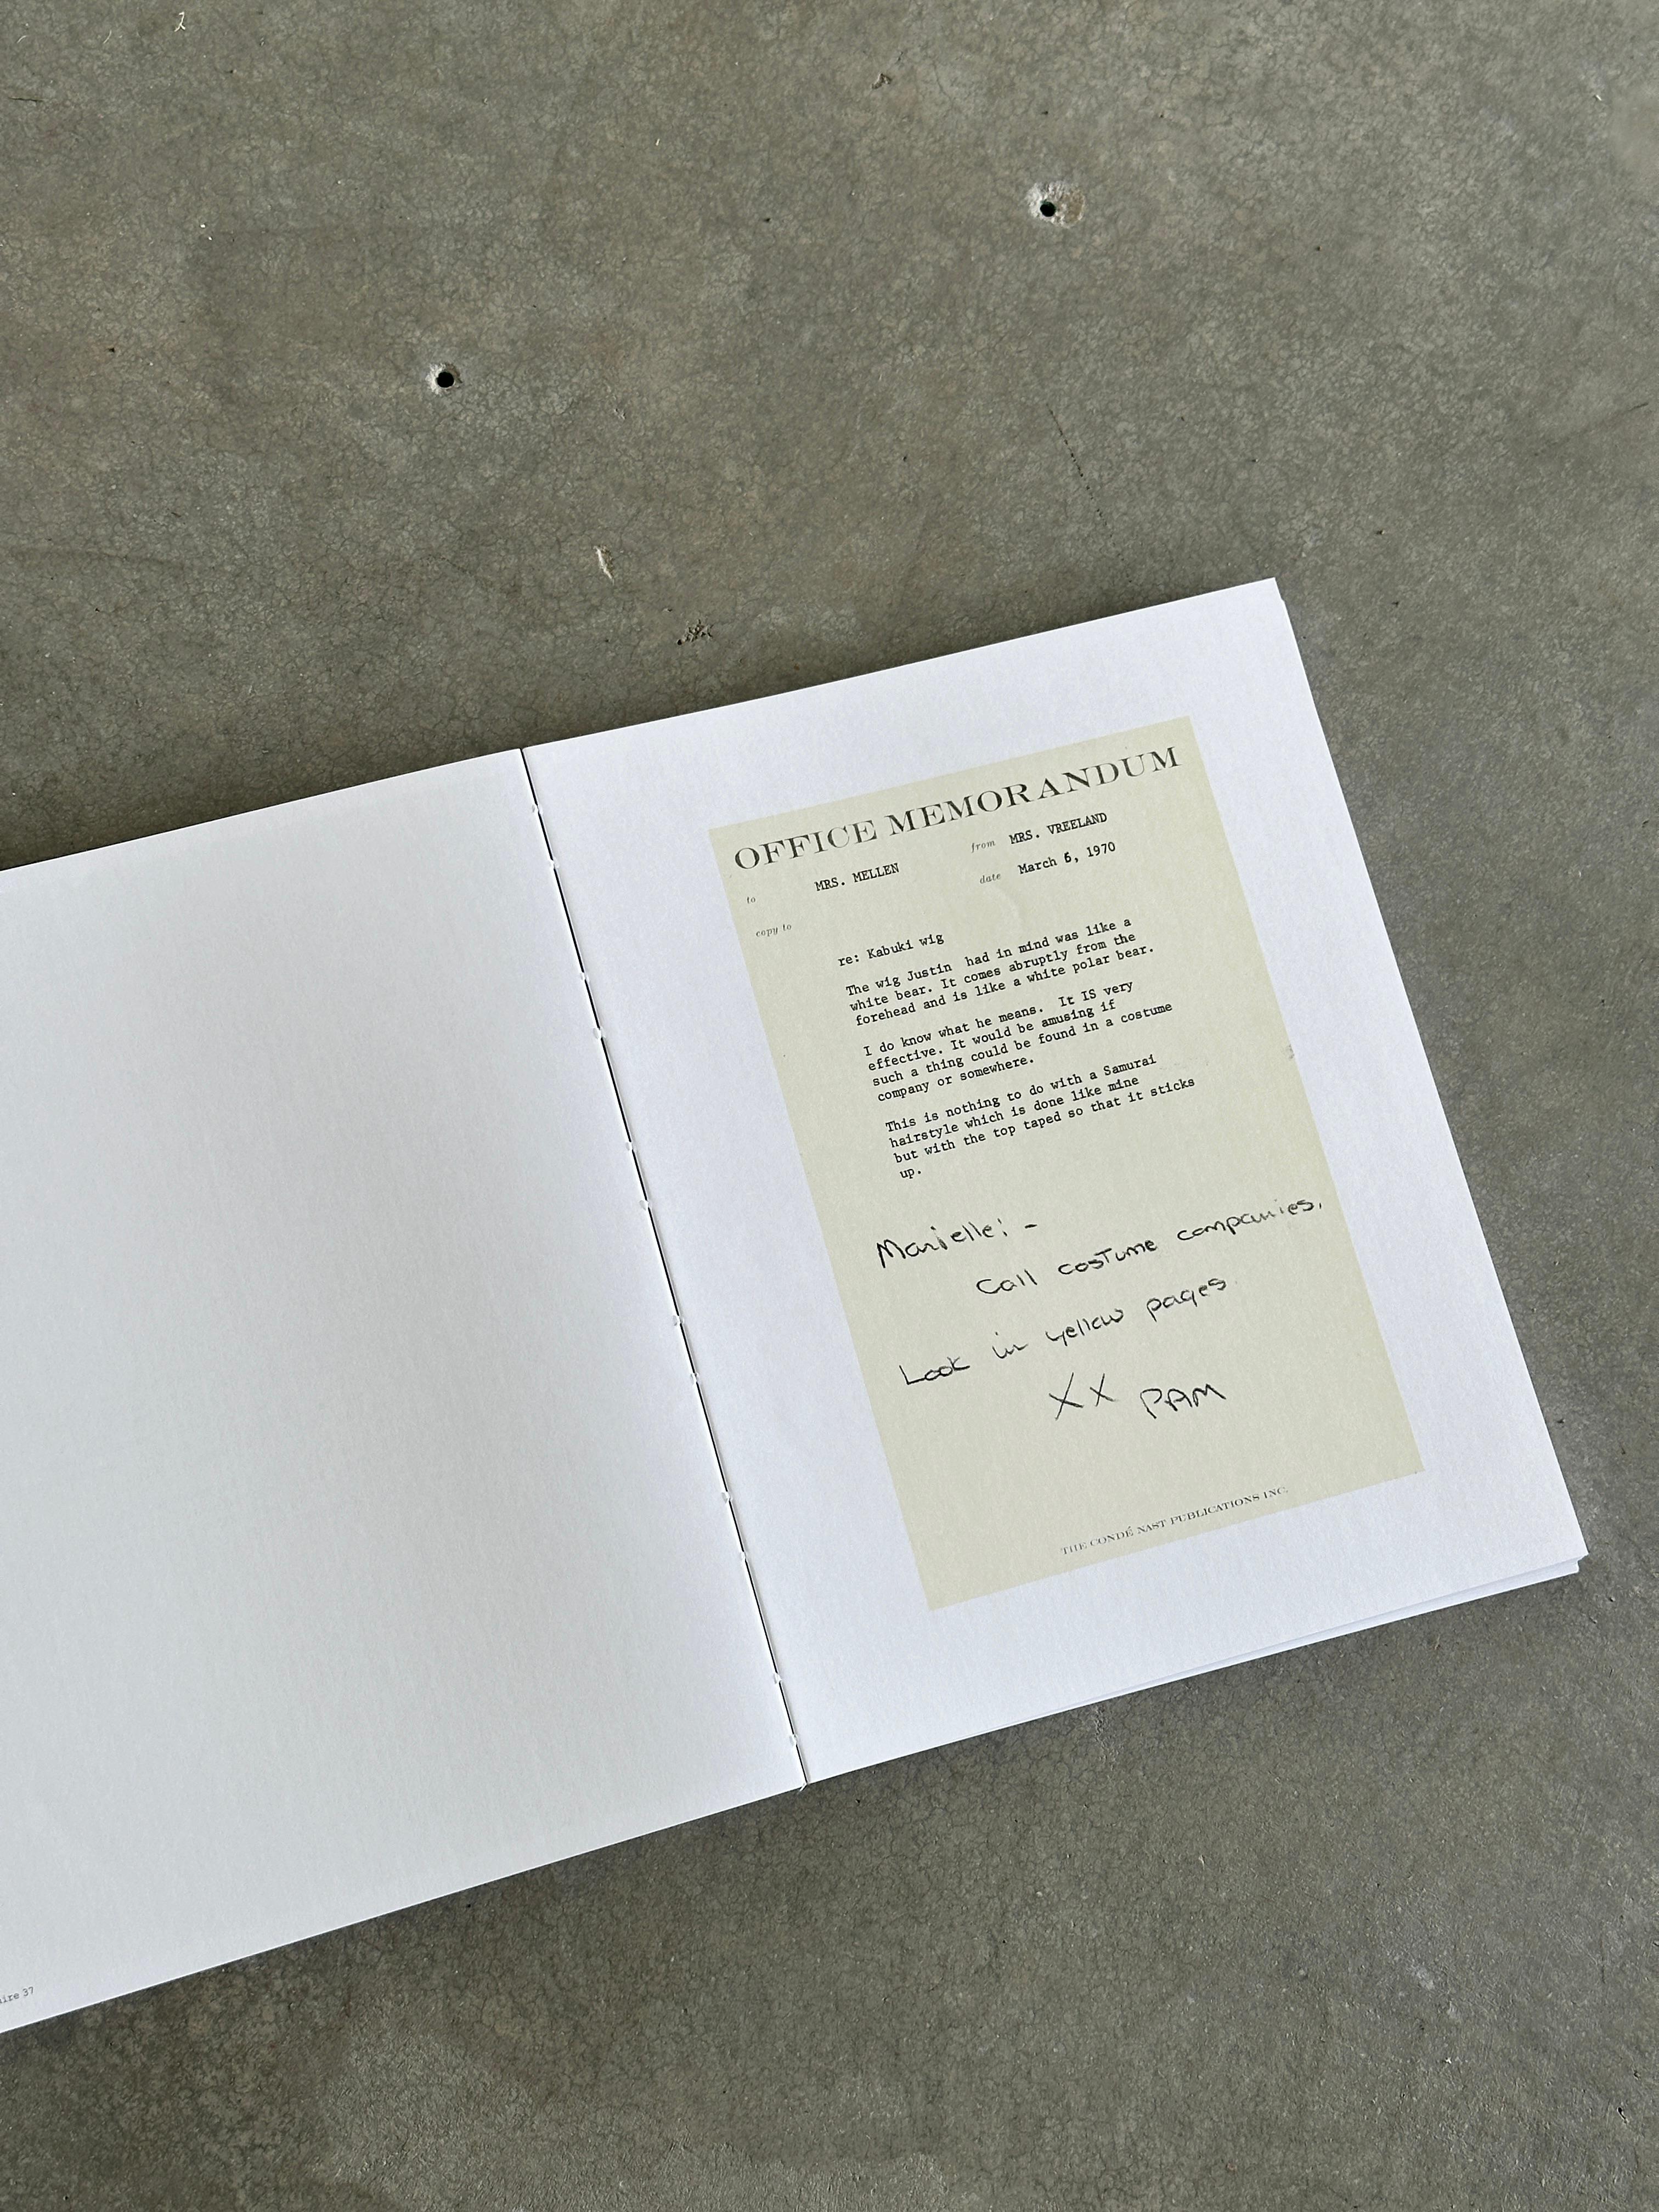 OFFICE MEMORANDUM
to MRS. MELLEN
from MRS. VREELAND
copy to
date March 6, 1970
re: Kabuki wig
The wig Justin had in mind was like a
white bear. It comes abruptly from the
forehead and is like a white polar bear.
I do know what he means. It IS very
effective. It would be amusing if
such a thing could be found in a costume
company or somewhere.
This is nothing to do with a Samurai
hairstyle which is done like mine
but with the top taped so that it sticks
up.
Marielle: -
Call costume companies,
Look in yellow pages
XX PAM
THE CONDÉ NAST PUBLICATIONS INC.
37